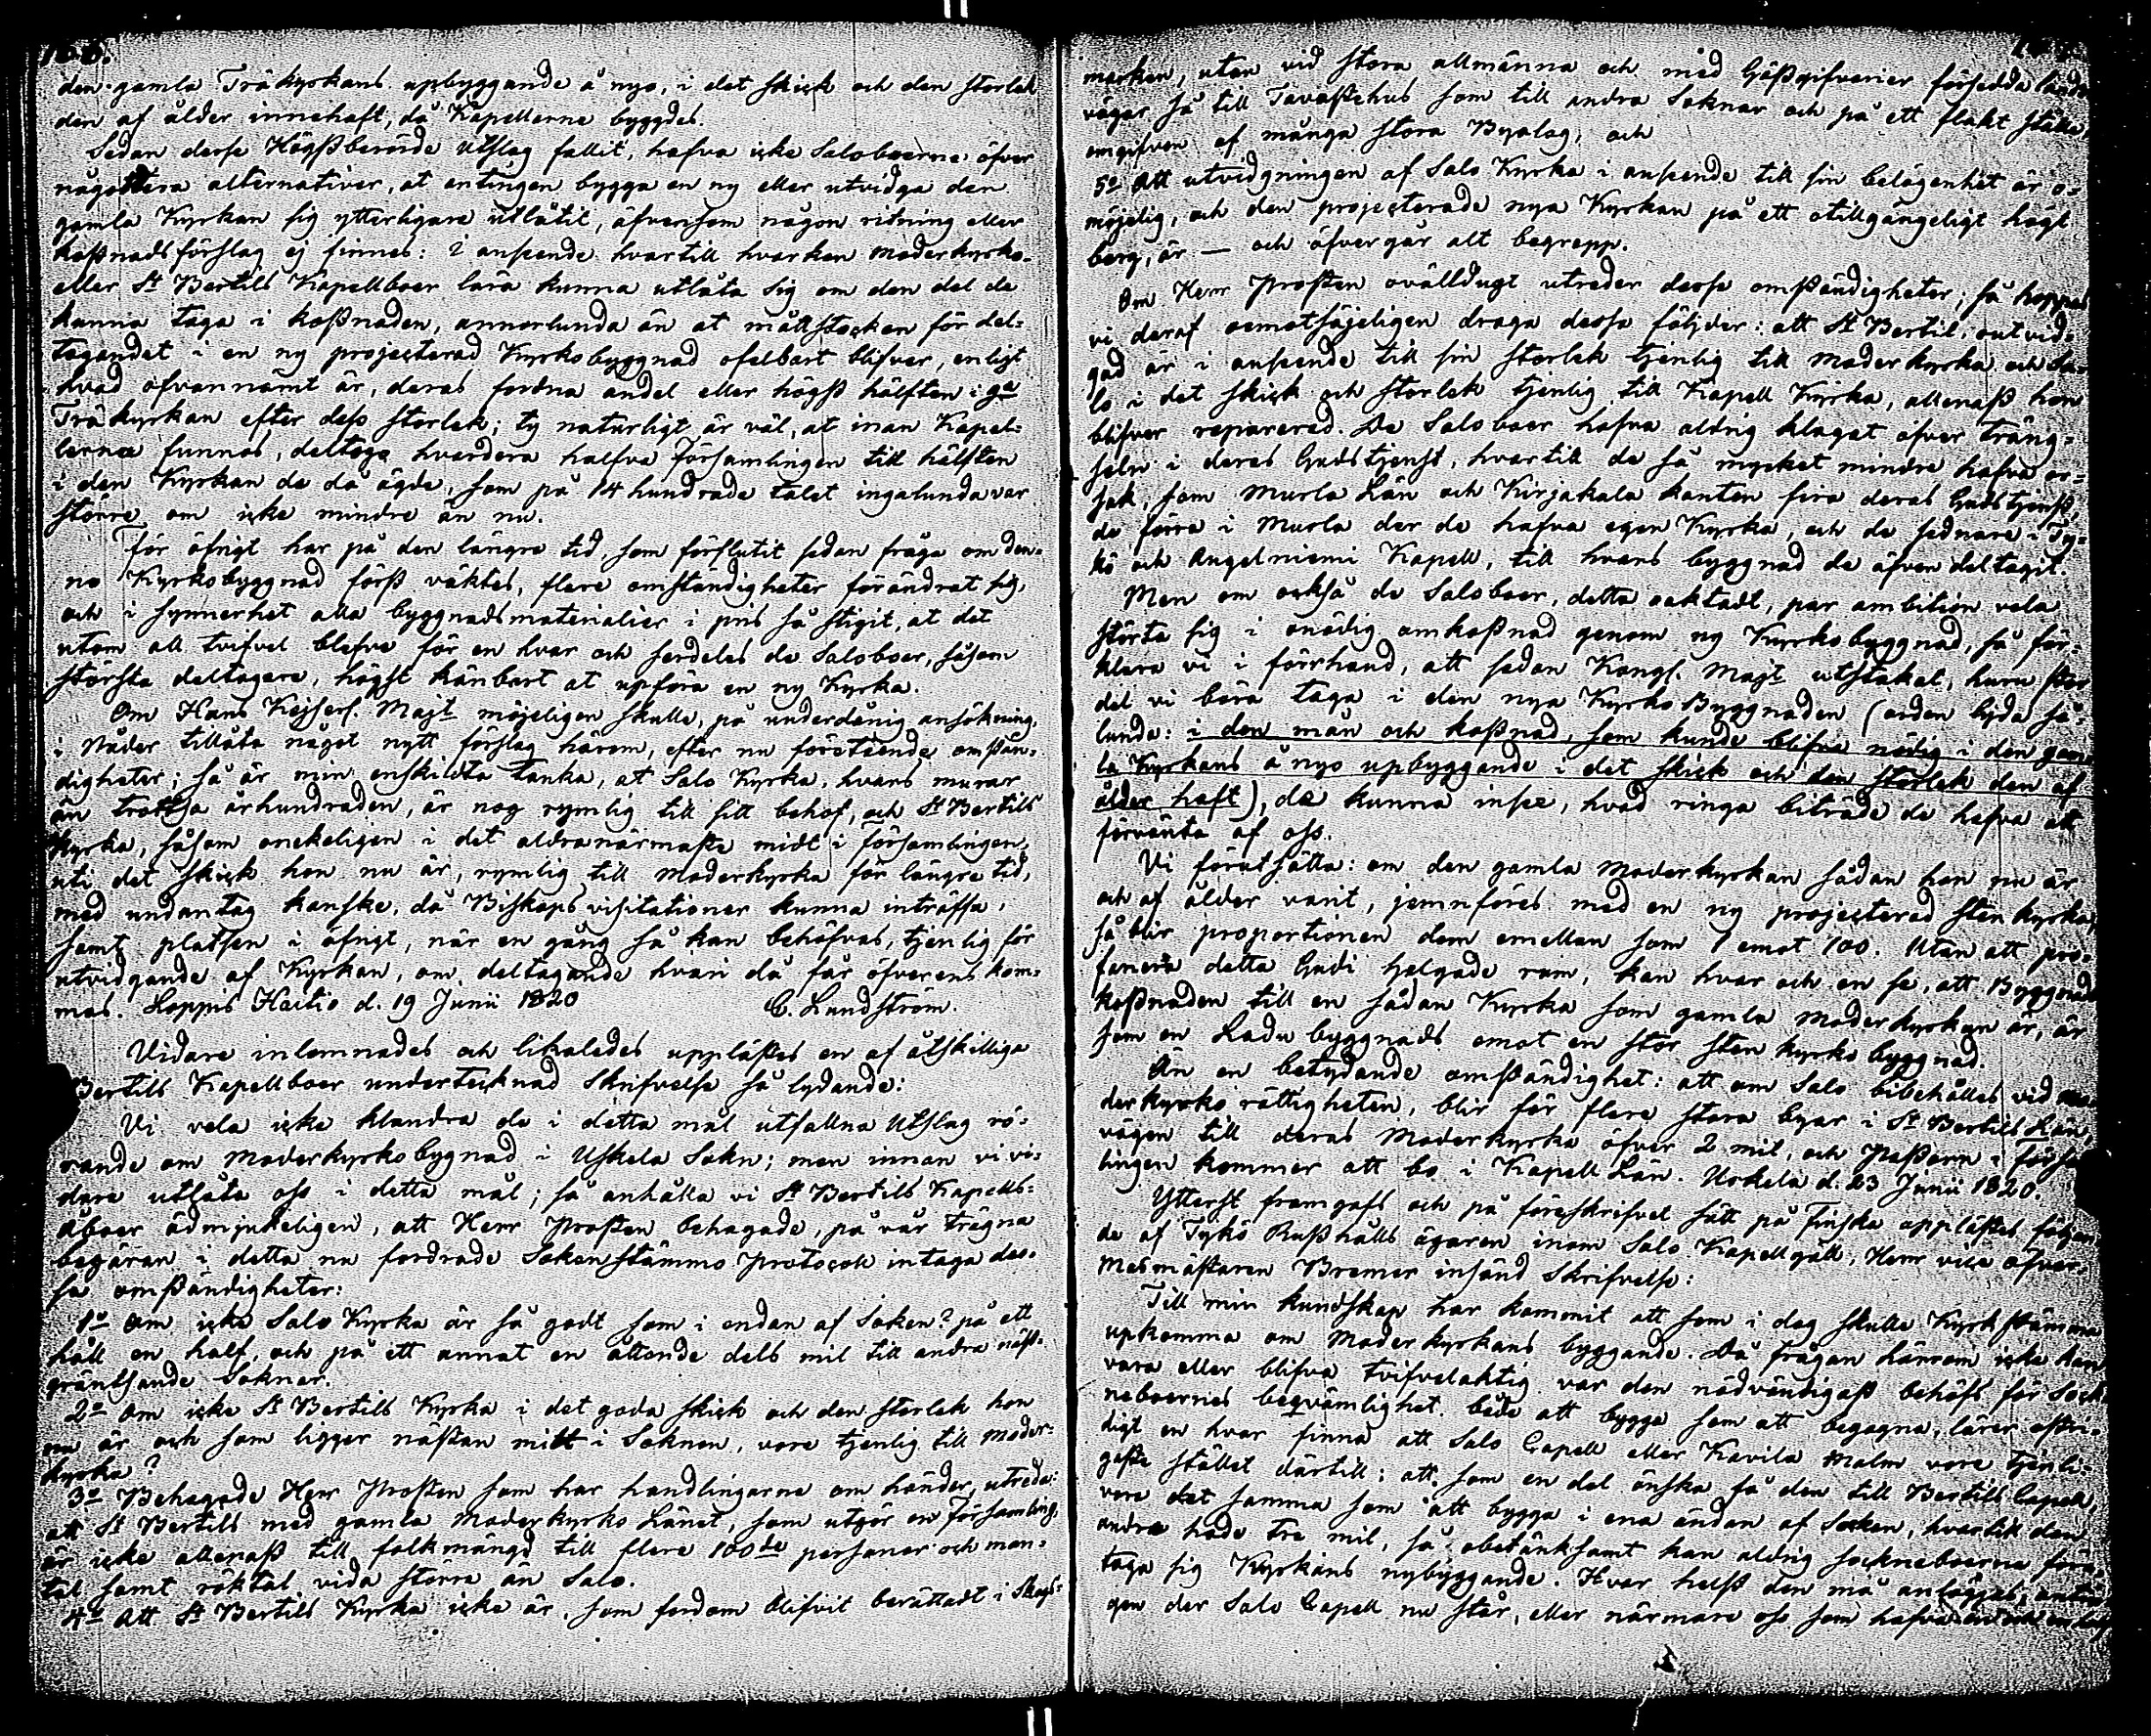 166.
den gamla Träkyrkans upbyggande å nyo, i det skick och den storlek
den af ålder innehaft, då Kapellerne byggdes.
Sedan desse Högstberörde Utslag fallit, hafva icke Saloboerne öfver
någondera alternativer, at entingen bygga en ny eller utvidga den
gamla Kyrkan sig ytterligare utlåtit, äfvensom någon ritning eller
kostnadsförslag ej finnes: I anseende hvartill hvarken moderkyrko-
eller St Bertils Kapellboer lära kunna utlåta sig om den del de
kunna taga i kostnaden, annorlunda än at måttstocken för del-
tagandet i en ny projecterad Kyrkobyggnad ofelbart blifver, enligt
hvad ofvannämt är, deras fordna andel eller högst hälften i ga
Träkyrkan efter dess storlek; ty naturligt är väl, at inan Kapel-
lerna funnos, deltogo hvardera halfva Församlingen till hälften
i den Kyrkan de då ägde, som på 14 hundrade talet ingalunda var
större om icke mindre än nu.
För öfrigt har på den längre tid, som förflutit sedan fråga om den-
na Kyrkobyggnad först väktes, flere omständigheter förändrat sig,
och i synnerhet alla byggnadsmaterialier i pris så stigit, at det
utom all tvifvel blefve för en hvar och serdeles de Saloboer, såsom
största deltagare, högst känbart at upföra en ny Kyrka.
Om Hans Kejserl. Majt möjeligen skulle, på underdånig ansökning,
i Nåder tillåta något nytt förslag härom, efter nu företeende omstän-
digheter; så är min enskildta tanka, at Salo Kyrka, hvars murar
än trotsa århundraden, är nog rymlig till sitt behof, och St Bertils
Kyrka, såsom onekeligen i det aldranärmaste midt i församlingen,
uti det skick hon nu är, rymlig till Moderkyrka för längre tid,
med undantag kanske, då Biskops visitationer kunna inträffa,
samt platsen i öfrigt, när en gång så kan behöfvas, tjenlig för
utvidgande af Kyrkan, om deltagande hvari då får öfverens kom-
mas. Loppis Haitio d. 19 Junii 1820 C. Lundström.
Vidare inlemnades och likaledes upplästes en af åtskillige
Bertils Kapellboer undertecknad Skrifvelse så lydande:
Vi vela icke klandra de i detta mål utfallna Utslag rö-
rande om Moderkyrkobygnad i Uskela Sokn; men innan vi vi-
dare utlåta oss i detta mål; så anhålla vi St Bertils Kapells-
åboer ödmjukeligen, att Herr Prosten behagade, på vår trägna
begäran i detta nu fordrade Sokenstämmo Protocoll intaga des-
sa omständigheter:
1o Om icke Salo Kyrka är så godt som i endan af Soken? på ett
håll en half, och på ett annat en åttonde dels mil till andra näst-
gräntsande Soknar.
2o Om icke St Bertils Kyrka i det goda skick och den storlek hon
nu är och som ligger nästan mitt i Soknen, vore tjenlig till Moder-
kyrka?
3o Behagade Herr Prosten som har handlingarne om händer, utreda:
att St Bertils med gamla Moderkyrko Länet, som utgör en Församling,
är icke allenast till folkmängd till flere 100de personer och man-
tal samt röktal vida större än Salo.
4o Att St Bertils Kyrka icke är, som fordom blifvit berättadt i Skogs-
marken, utan vid stora allmänna och med Gästgifverier försedda lands
vägar så till Tavastehus som till andra Soknar och på ett flakt ställe,
omgifven af många stora Byalag, och
5o Att utvidgningen af Salo Kyrka i anseende till sin belägenhet är o-
möjelig, och den projecterade nya Kyrkan på ett otillgängeligt högt
berg, är — och öfvergår alt begrepp.
Om Herr Prosten ovälldugt utreder desse omständigheter; så hoppas
vi deraf oemotsäjeligen draga desse följder: att St Bertil, outvid-
gad är i anseende till sin storlek tjenlig till Moderkyrka och Sa-
lo i det skick och storlek tjenlig till Kapell Kyrka, allenast hon
blifver reparerad. De Saloboer hafva aldrig klagat öfver träng-
seln i deras Gudstjenst, hvartill de så mycket mindre hafva or-
sak, som Murla Län och Kirjakala kanten fira deras Gudstjenst,
de förra i Murla der de hafva egen Kyrka, och de sednare i Ty-
kö och Angelniemi Kapell, till hvars byggnad de äfven deltagit.
Men om också de Saloboer, detta oaktadt, par ambition vela
störta sig i onödig omkostnad genom ny Kyrkobyggnad, så för-
klara vi i förrhand, att sedan Kongl. Majt utstakat, huru stor
del vi böra taga i den nya Kyrko Byggnaden (orden lyda så-
lunda: i den mån och kostnad, som kunde blifva nödig i den gam-
la Kyrkans å nyo upbyggande i det skick och den storlek den af
ålder haft), de kunna inse, hvad ringa biträde de hafva att
förvänta af oss.
Vi förutsätta: om den gamla Moderkyrkan sådan hon nu är
och af ålder varit, jemnföres med en ny projecterad sten kyrka,
så blir proportionen dem emellan som 1 emot 100. Utan att pro-
fanera detta Gudi helgade rum, kan hvar och en se, att Byggnads
kostnaden till en sådan Kyrka som gamla Moderkyrkan är, är
som en Ladu byggnads emot en stor sten kyrko byggnad.
Än en betydande omständighet: att om Salo bibehålles vid mo-
derkyrko rättigheten, blir för flere stora byar i St Bertils Län,
vägen till deras Moderkyrka öfver 2 mil, och Pastorn i försam
lingen kommer att bo i Kapell Län. Uskela d. 23 Junii 1820.
Ytterst framgafs och på föreskrifvet sätt på Finska upplästes följan
de af Tykö Rusthålls ägaren inom Salo Kapellgäll, Herr vice öfver-
Masmästaren Bremer insänd Skrifvelse:
Till min kundskap har kommit att som i dag skulle Kyrkstämma
upkomma om Moder kyrkans byggande. Då frågan härom icke kan
vara eller blifva tvifvelaktig var den nödvändigast behöfs för Sock
neboernes beqvämlighet både att bygga som att begagna, lärer ostri-
digt en hvar finna att Salo Capell eller Kavila Malm vore tjenli-
gaste stället därtill; att, som en del önska få den till Bertils Capell,
vore det samma som att bygga i ena ändan af Socken, hvartill den
andra hade tre mil, så obetänksamt kan aldrig sockneboerna före-
taga sig Kyrkans nybyggande. Hvar helst den må anlägges, antin
gen der Salo Capell nu står, eller närmare oss som hafva